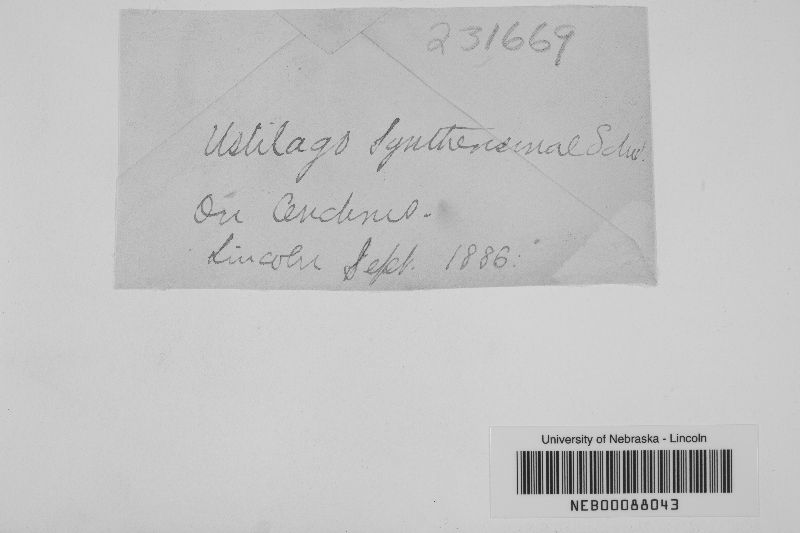 231669
Ustilago Syntherismae Schw.
On Cenchrus.
Lincoln Sept. 1886.
University of Nebraska - Lincoln
NEB00088043